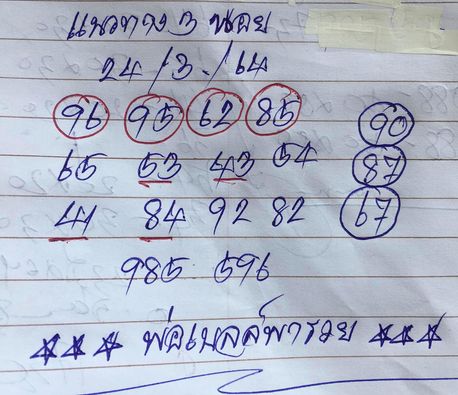 แนวทาง 3 หน่อย
24/3./64
96 95 62 85 90
65 53 43 54 87
41 84 92 82 67
985 596
☆☆☆ พ่อเบลล์พารวย ☆☆☆